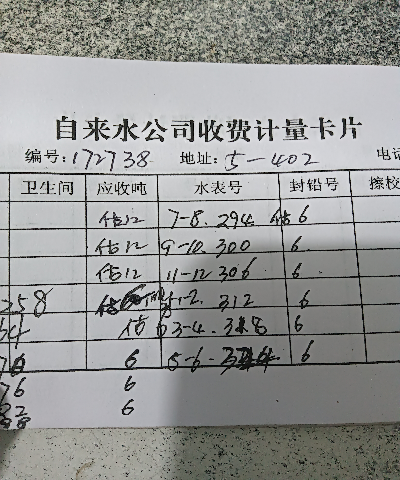 自来水公司收费计量卡片
编号:172738 地址:5-402 电话
卫生间 应收吨 水表号 封铅号 擦校
估12 7-8. 294 估6
估12 9-10. 300 6
估12 11-12 306 6
258 1-2. 312 6
34 估6 3-4. 318 6
76 6 5-6- 324 6
76 6
82 6